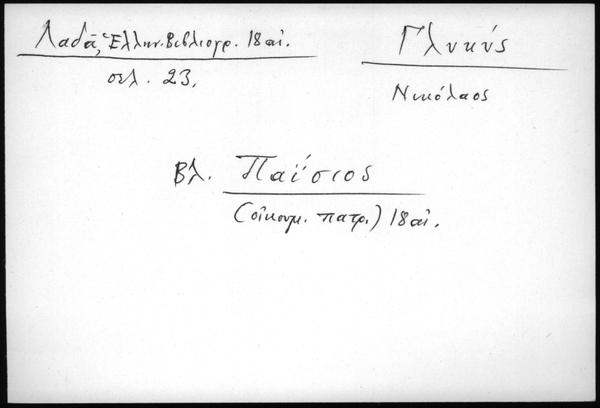 Λαδᾶ, Ἑλλην. Βιβλιογρ. 18 αἰ.
σελ. 23.
Γλυκύς
Νικόλαος
Βλ. Παΐσιος
(οἰκουμ. πατρ.) 18 αἰ.